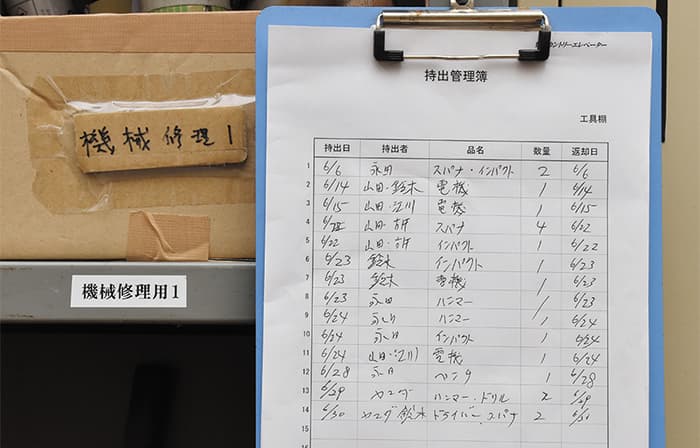 カントリーエレベーター
持出管理簿
工具棚
機械修理1
機械修理用1
持出日 持出者 品名 数量 返却日
1 6/6 永田 スパナ・インパクト 2 6/6
2 6/14 山田・鈴木 電機 1 6/14
3 6/15 山田・江川 電機 1 6/15
4 山田・ スパナ 4 6/22
5 6/22 山田・ インパクト 1 6/22
6 6/23 鈴木 インパクト 1 6/23
7 6/23 鈴木 電機 1 6/23
8 6/23 永田 ハンマー 1 6/23
9 6/24 永田 ハンマー 1 6/24
10 6/24 永田 インパクト 1 6/24
11 6/24 山田・江川 電機 1 6/24
12 6/28 永田 ペンチ 1 6/28
13 6/29 ヤマダ ハンマー・ドリル 2 6/29
14 6/30 ヤマダ 鈴木 ドライバー・スパナ 2
15